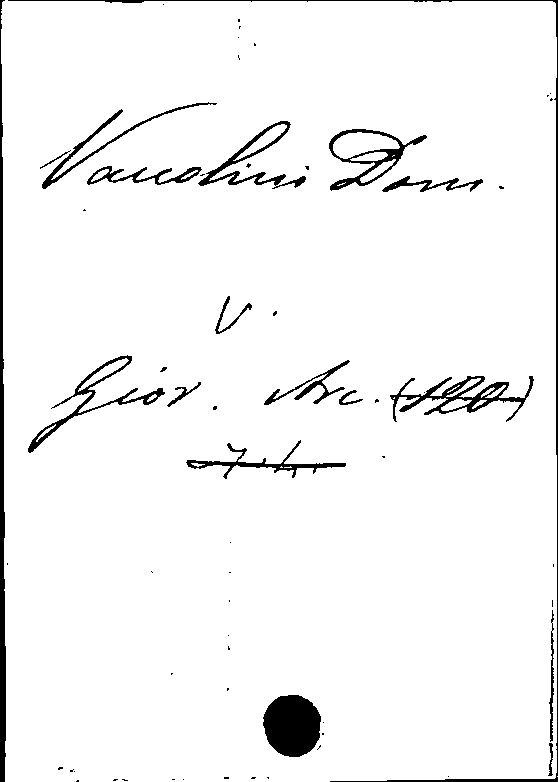 Vaccolini Dom.
V.
Giov. Arc. (120)